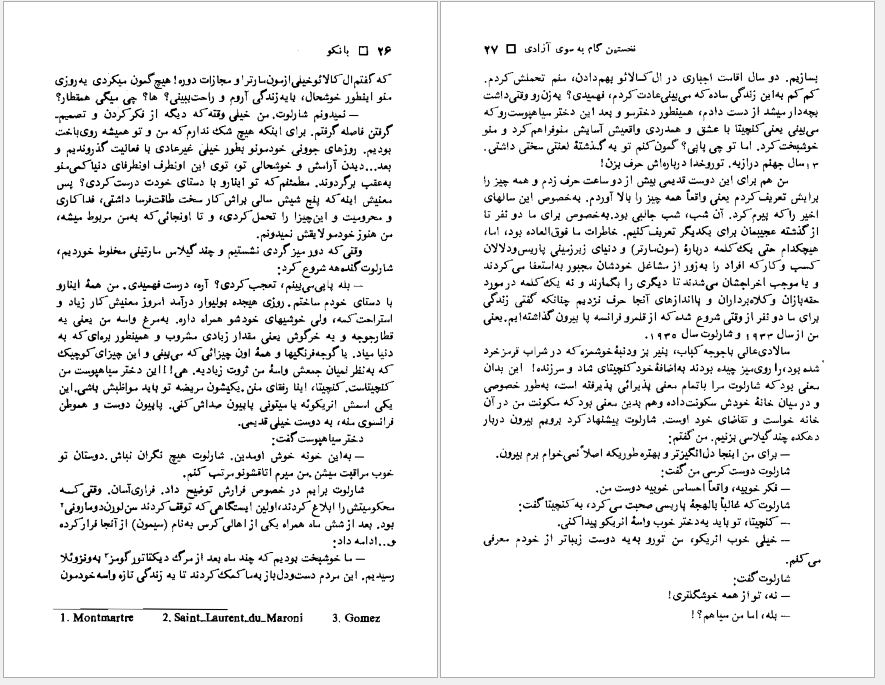 ۲۶ □ بانکو
که گفتم ال کالائو خیلی ازمون مارتر۱ و مجازات دوره! هیچ گمون میکردی یه روزی
منو اینطور خوشحال، بایه زندگی آروم و راحت ببینی؟ ها؟ چی میگی همقطار؟
— نمیدونم شارلوت. من خیلی وقته که دیگه از فکر کردن و تصمیم‌ـ
گرفتن فاصله گرفتم. برای اینکه هیچ شک ندارم که من و تو همیشه روی باخت
بودیم. روزهای جوونی خودمونو بطور خیلی غیرعادی با فعالیت گذروندیم و
بعد... دیدن آرامش و خوشحالی تو، توی این اونطرف اونطرفای دنیا کمی منو
به عقب برگردوند. مطمئنم که تو اینارو با دستای خودت درست کردی؟ پس
معنیش اینه که پنج شیش سالی براش کار سخت طاقت‌فرسا داشتی، فداکاری
و محرومیت و این چیزا را تحمل کردی، و تا اونجائی که به من مربوط میشه،
من هنوز خودمو لایقش نمیدونم.
وقتی که دور میز گردی نشستیم و چند گیلاس مارتینی مخلوط خوردیم،
شارلوت گنده هه شروع کرد:
— بله پاپی می‌بینم، تعجب کردی؟ آره، درست فهمیدی. من همهٔ اینارو
با دستای خودم ساختم. روزی هیجده بولیوار درآمد امروز معنیش کار زیاد و
استراحت کمه، ولی خوشیهای خودشو همراه داره. یه مرغ واسه من یعنی یه
قطار جوجه و یه خرگوش یعنی مقدار زیادی مشروب و همینطور بره‌ای که به
دنیا میاد. یا گوجه‌فرنگیها و همهٔ اون چیزائی که می‌بینی و این چیزای کوچیک
که به نظر نمیان جمعش واسهٔ من ثروت زیادیه. هی!! این دختر سیاهپوست من
کنچیتاست. کنچیتا، اینا رفقای منن. یکیشون مریضه تو باید مواظبش باشی. این
یکی اسمش انریکوئه یا میتونی پاپیون صداش کنی. پاپیون دوست و هموطن
فرانسوی منه، یه دوست خیلی قدیمی.
دختر سیاهپوست گفت:
— به این خونه خوش اومدین. شارلوت هیچ نگران نباش. دوستان تو
خوب مراقبت میشن. من میرم اتاقشونو مرتب کنم.
شارلوت برایم در خصوص فرارش توضیح داد. فراری آسان. وقتی کسه
محکومیتش را ابلاغ کردند، اولین ایستگاهی که توقف کردند سن لورن دو مارونی۲
بود. بعد از شش ماه همراه یکی از اهالی کرس به نام (سیمون) از آنجا فرار کرده
و... ادامه داد:
— ما خوشبخت بودیم که چند ماه بعد از مرگ دیکتاتور گومز۳ به ونزوئلا
رسیدیم. این مردم دست‌ودل باز به ما کمک کردند تا یه زندگی تازه واسه خودمون
1. Montmartre 2. Saint_Laurent_du_Maroni 3. Gomez
نخستین گام به سوی آزادی □ ۲۷
بسازیم. دو سال اقامت اجباری در ال کالائو بهم دادن، منم تحملش کردم.
کم کم به این زندگی ساده که می‌بینی عادت کردم، فهمیدی؟ یه زن رو وقتی داشت
بچه‌دار میشد از دست دادم، همینطور دخترمو و بعد این دختر سیاهپوست رو که
می‌بینی یعنی کنچیتا با عشق و همدردی واقعیش آسایش منو فراهم کرد و منو
خوشبخت کرد. اما تو چی پاپی؟ گمون کنم تو یه گذشتهٔ لعنتی سختی داشتی.
۱۳ سال جهنم درازیه. تورو خدا درباره‌اش حرف بزن!
من هم برای این دوست قدیمی بیش از دو ساعت حرف زدم و همه چیز را
برایش تعریف کردم یعنی واقعاً همه چیز را بالا آوردم. به خصوص این سالهای
اخیر را که پیرم کرد. آن شب، شب جالبی بود. به خصوص برای ما دو نفر تا
از گذشته عجیبمان برای یکدیگر تعریف کنیم. خاطرات ما فوق‌العاده بود، اما،
هیچکدام حتی یک کلمه دربارهٔ (مون‌مارتر) و دنیای زیرزمینی پاریس و دلالان
کسب و کار که افراد را به زور از مشاغل خودشان مجبور به استعفا می‌کردند
و یا موجب اخراجشان می‌شدند تا دیگری را بگمارند و نه یک کلمه در مورد
حقه‌بازان و کلاه‌برداران و پااندازهای آنجا حرف نزدیم چنانکه گفتی زندگی
برای ما دو نفر از وقتی شروع شده که از قلمرو فرانسه پا بیرون گذاشته‌ایم. یعنی
من از سال ۱۹۳۳ و شارلوت سال ۱۹۳۵.
سالادی عالی باجوجه کباب، پنیر بز و دنبهٔ خوشمزه که در شراب قرمز خرد
شده بود، را روی میز چیده بودند به اضافهٔ خود کنچیتای شاد و سرزنده! این بدان
معنی بود که شارلوت مرا با تمام معنی پذیرائی پذیرفته است، به طور خصوصی
و در میان خانهٔ خودش سکونت داده و هم بدین معنی بود که سکونت من در آن
خانه خواست و تقاضای خود اوست. شارلوت پیشنهاد کرد برویم بیرون دربار
دهکده چند گیلاسی بزنیم. من گفتم:
— برای من اینجا دل‌انگیزتر و بهتره طوریکه اصلاً نمی‌خوام برم بیرون.
شارلوت دوست کرسی من گفت:
— فکر خوبیه، واقعاً احساس خوبیه دوست من.
شارلوت که غالباً با لهجهٔ پاریسی صحبت می‌کرد، به کنچیتا گفت:
— کنچیتا، تو باید یه دختر خوب واسهٔ انریکو پیدا کنی.
— خیلی خوب انریکو، من تورو به یه دوست زیباتر از خودم معرفی
می‌کنم.
شارلوت گفت:
— نه، تو از همه خوشگلتری!
— بله، اما من سیاهم؟!